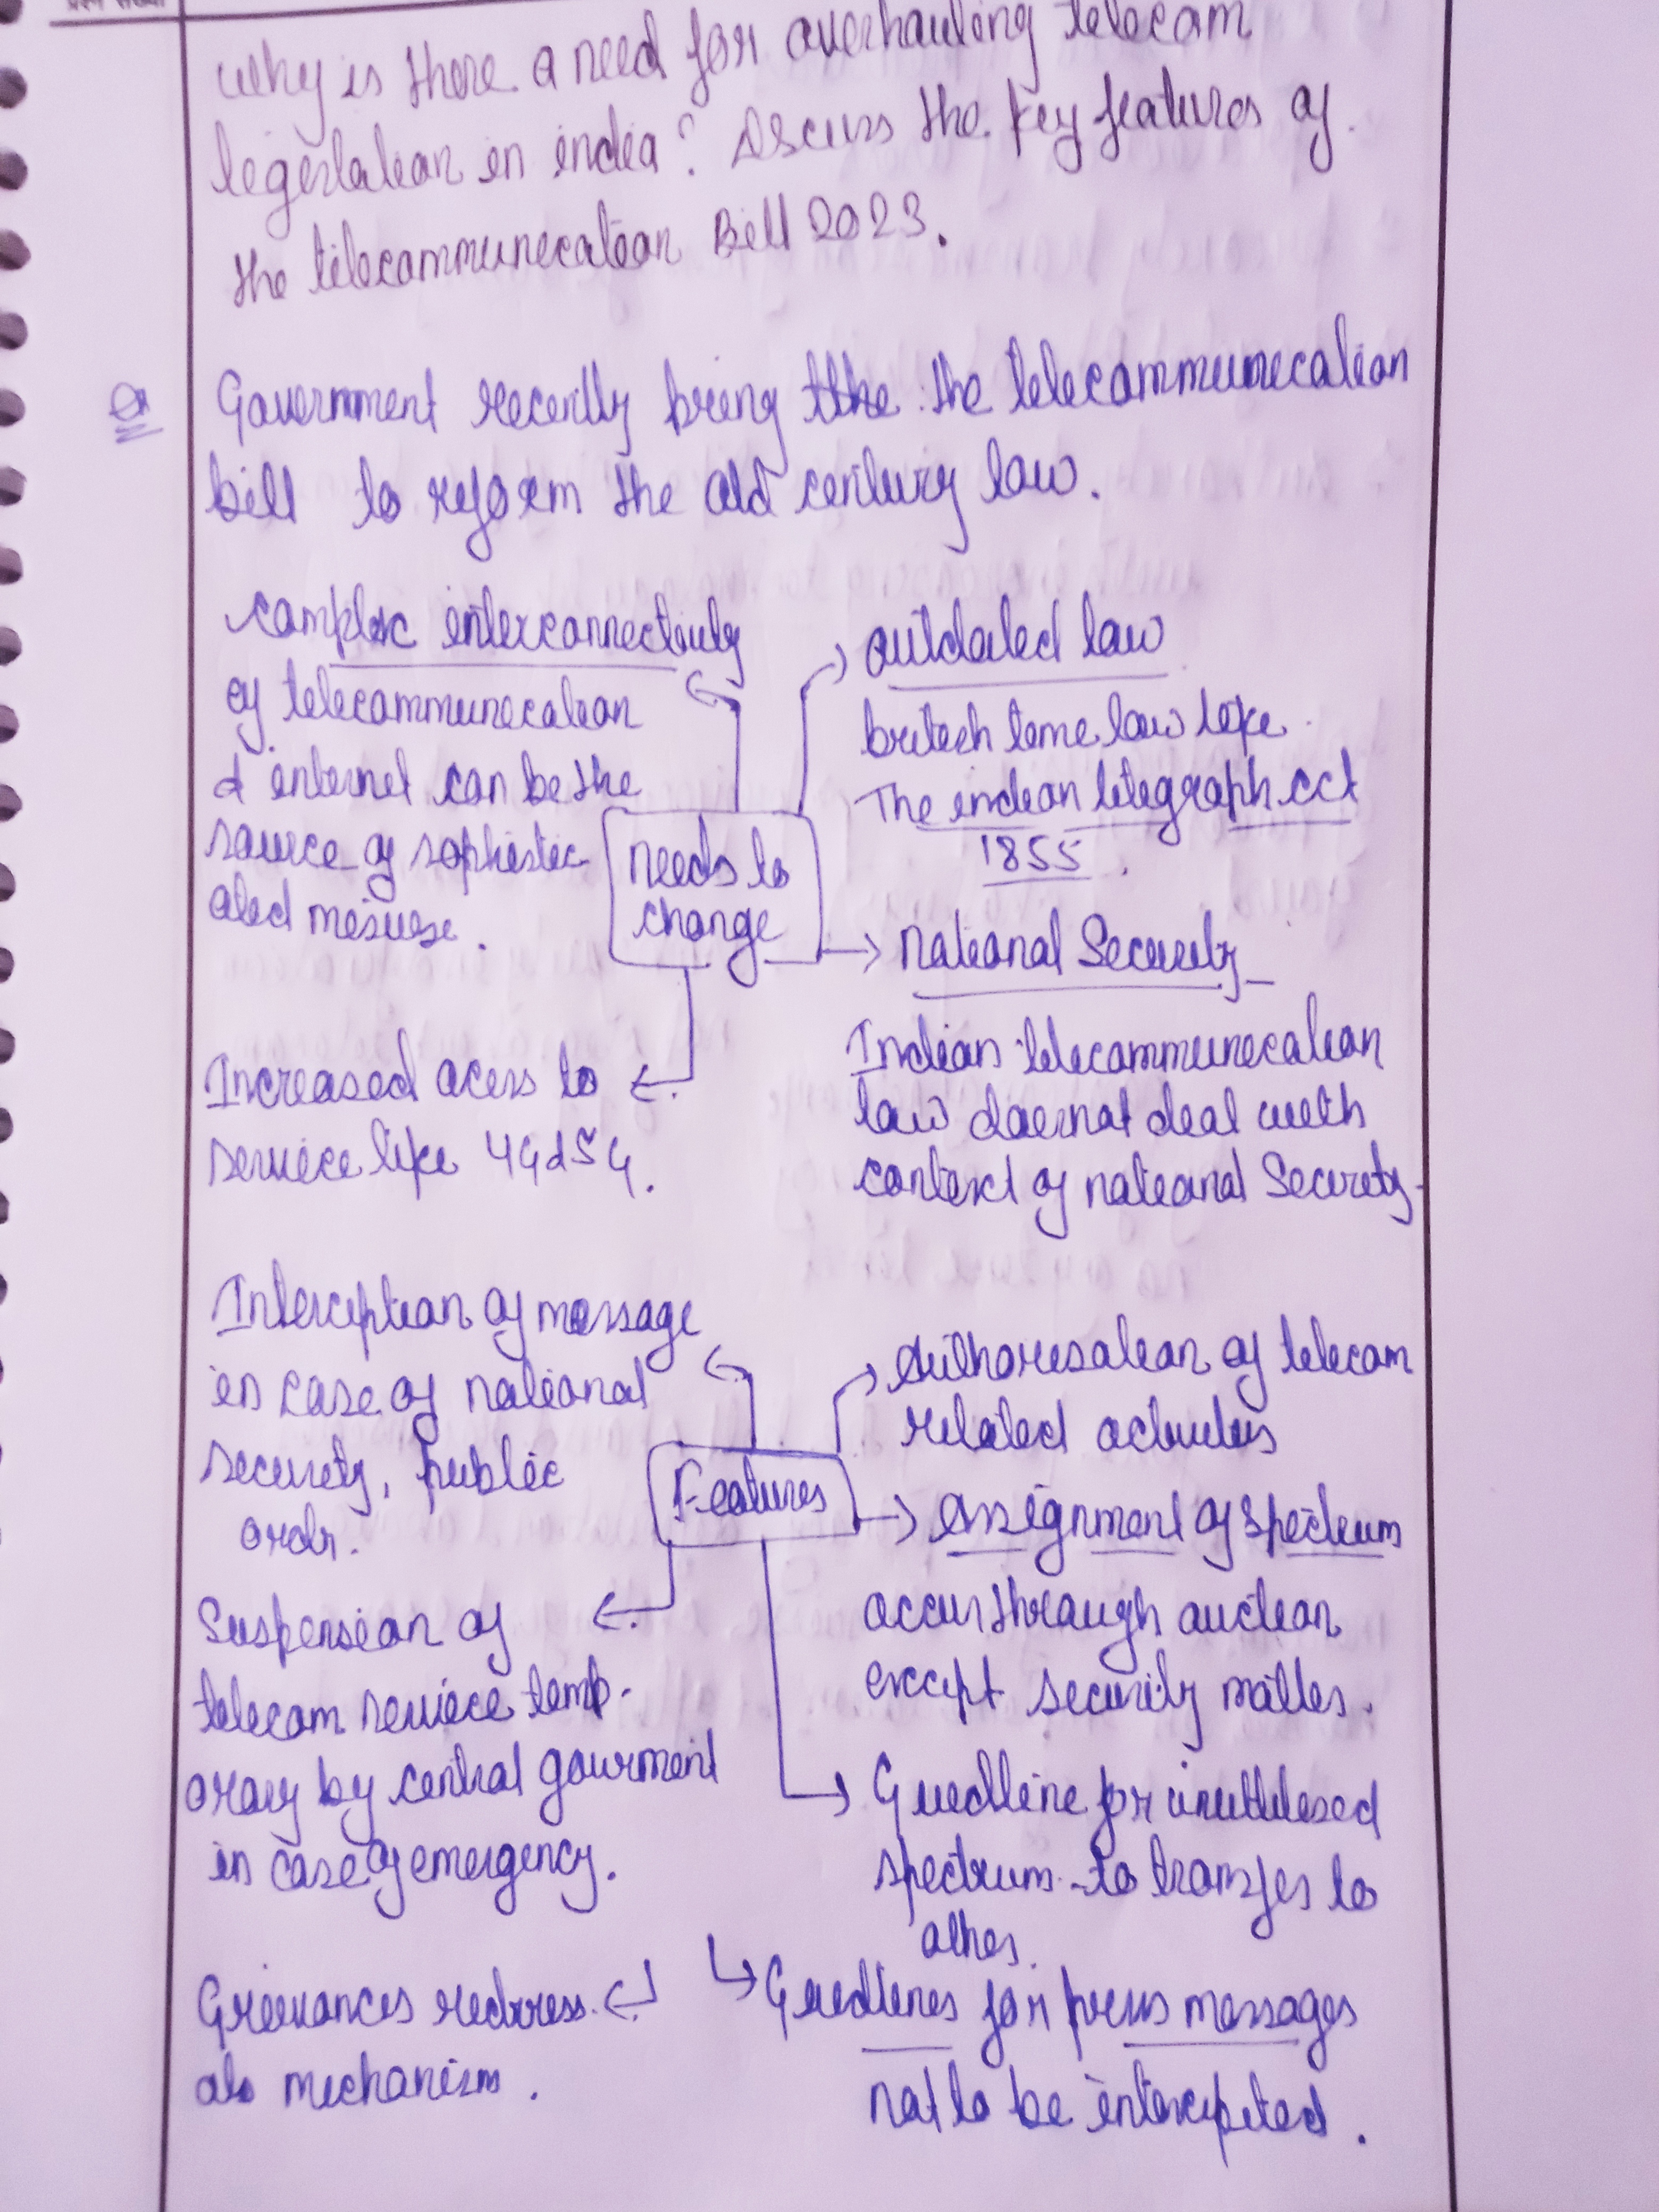 प्रश्न संख्या
Why is there a need for overhauling telecom
legislation in india? Discuss the key features of
the telecommunication Bill 2023.
Government recently bring the the telecommunication
bill to reform the old century law.
complex interconnectivity
of telecommunication
& internet can be the
source of sophistic
ated misuse.
needs to
change
outdated law
british time law like
The indian telegraph act
1855.
national Security
Indian telecommunication
law doesnot deal with
context of national Security
Increased acess to
service like 4G & 5G.
Interception of message
in case of national
security, public
ordr.
Features
Authorisation of telecom
related activities
assignment of spectrum
occur through auction
except security matters.
Suspension of
telecom service temp-
orary by central gourment
in case of emergency.
Guedline for unutilised
spectrum to transfer to
other.
Grievances redress
als mechanism.
Guedlines for press messages
not to be intercepted.